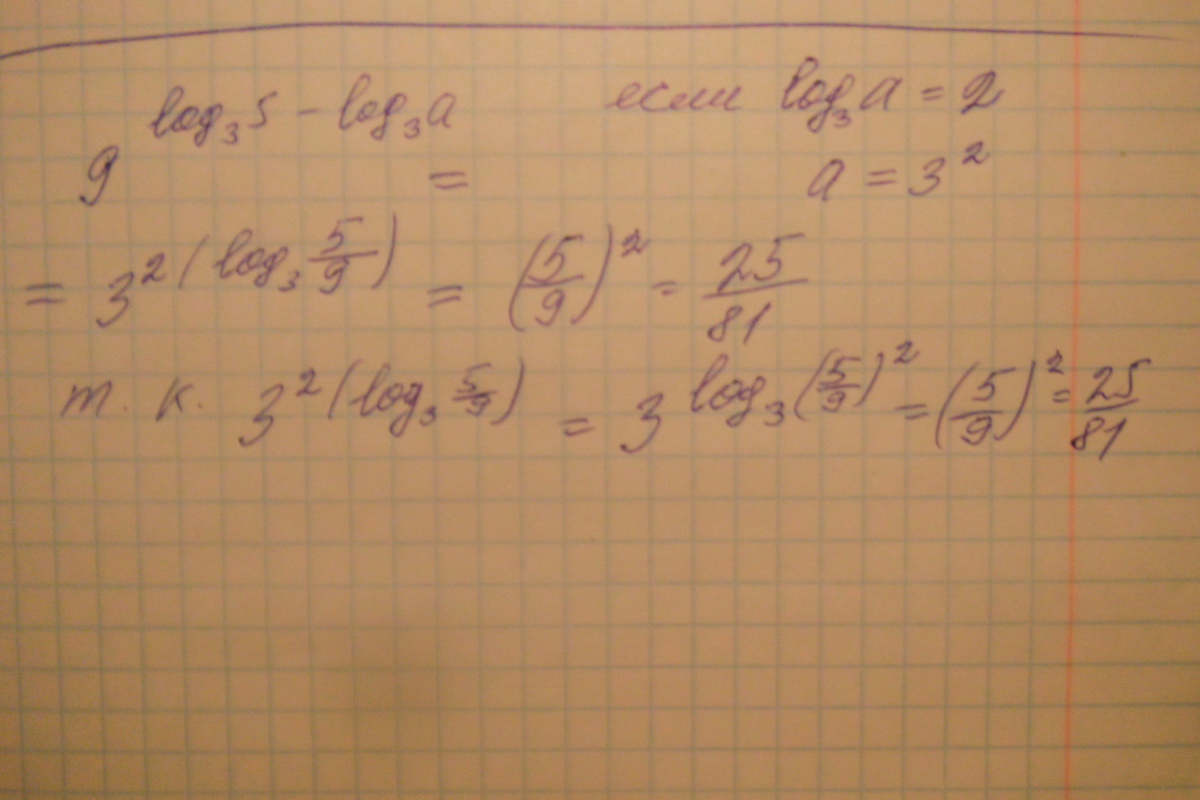 9^(log₃5 − log₃a) = если log₃a = 2
a = 3²
= 3^(2(log₃ 5/9)) = (5/9)² = 25/81
т. к. 3^(2(log₃ 5/9)) = 3^(log₃(5/9)²) = (5/9)² = 25/81